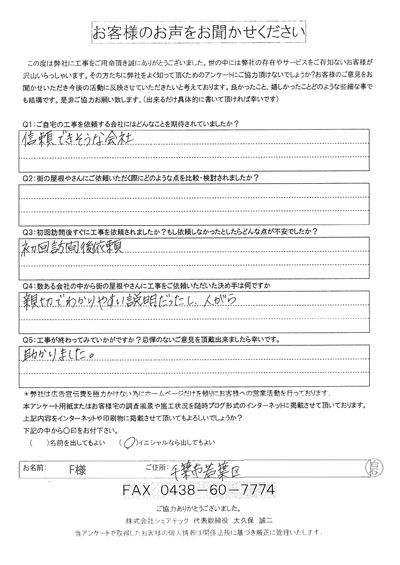 お客様のお声をお聞かせください
この度は弊社に工事をご用命頂き誠にありがとうございました。世の中には弊社の存在やサービスをご存知ないお客様が
沢山いらっしゃいます。その方たちに弊社をよく知って頂くためのアンケートにご協力頂けないでしょうか?お客様のご意見をお
聞かせいただき今後の活動に反映させていただきたいと考えております。良かったこと、嬉しかったことどのような些細な事で
も結構です。是非ご協力お願い致します。(出来るだけ具体的に書いて頂ければ幸いです)
Q1:ご自宅の工事を依頼する会社にはどんなことを期待されていましたか?
信頼できそうな会社
Q2:街の屋根やさんにご依頼いただく際にどのような点を比較・検討されましたか?
Q3:初回訪問後すぐに工事を依頼されましたか?もし依頼しなかったとしたらどんな点が不安でしたか?
初回訪問後依頼
Q4:数ある会社の中から街の屋根やさんに工事をご依頼いただいた決め手は何ですか
親切でわかりやすい説明だったし、人がら
Q5:工事が終わってみていかがですか?忌憚のないご意見を頂戴出来ましたら幸いです。
助かりました。
*弊社は広告宣伝費を極力かけない為にホームページだけを頼りにお客様への営業活動を行っております。
本アンケート用紙またはお客様宅の調査風景や施工状況を随時ブログ形式のインターネットに掲載させて頂いております。
上記内容をインターネットや印刷物に掲載させて頂いてもよろしいでしょうか?
下記の中から〇印をお付け下さい。
( )名前を出してもよい (〇)イニシャルなら出してもよい
お名前: F様 ご住所: 千葉市若葉区
FAX 0438-60-7774
ご協力ありがとうございました。
株式会社シェアテック 代表取締役 大久保 誠二
当アンケートで取得したお客様の個人情報は関係法規に基づき厳正に管理いたします。